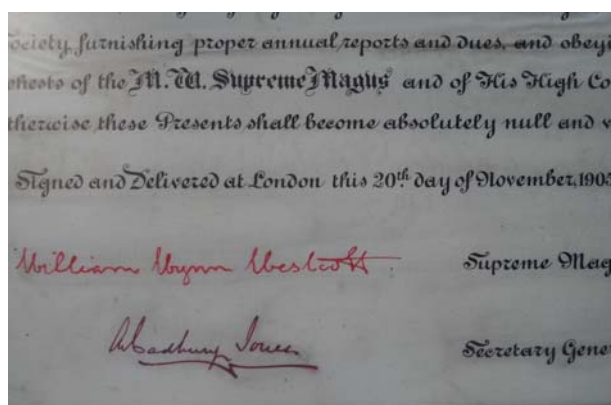 Society, furnishing proper annual reports and dues, and obeyi
ehests of the M.W. Supreme Magus and of His High Co
therwise these Presents shall become absolutely null and v
Signed and Delivered at London this 20th day of November, 190
William Wynn Westcott. Supreme Mag
Cadbury Jones Secretary Gene